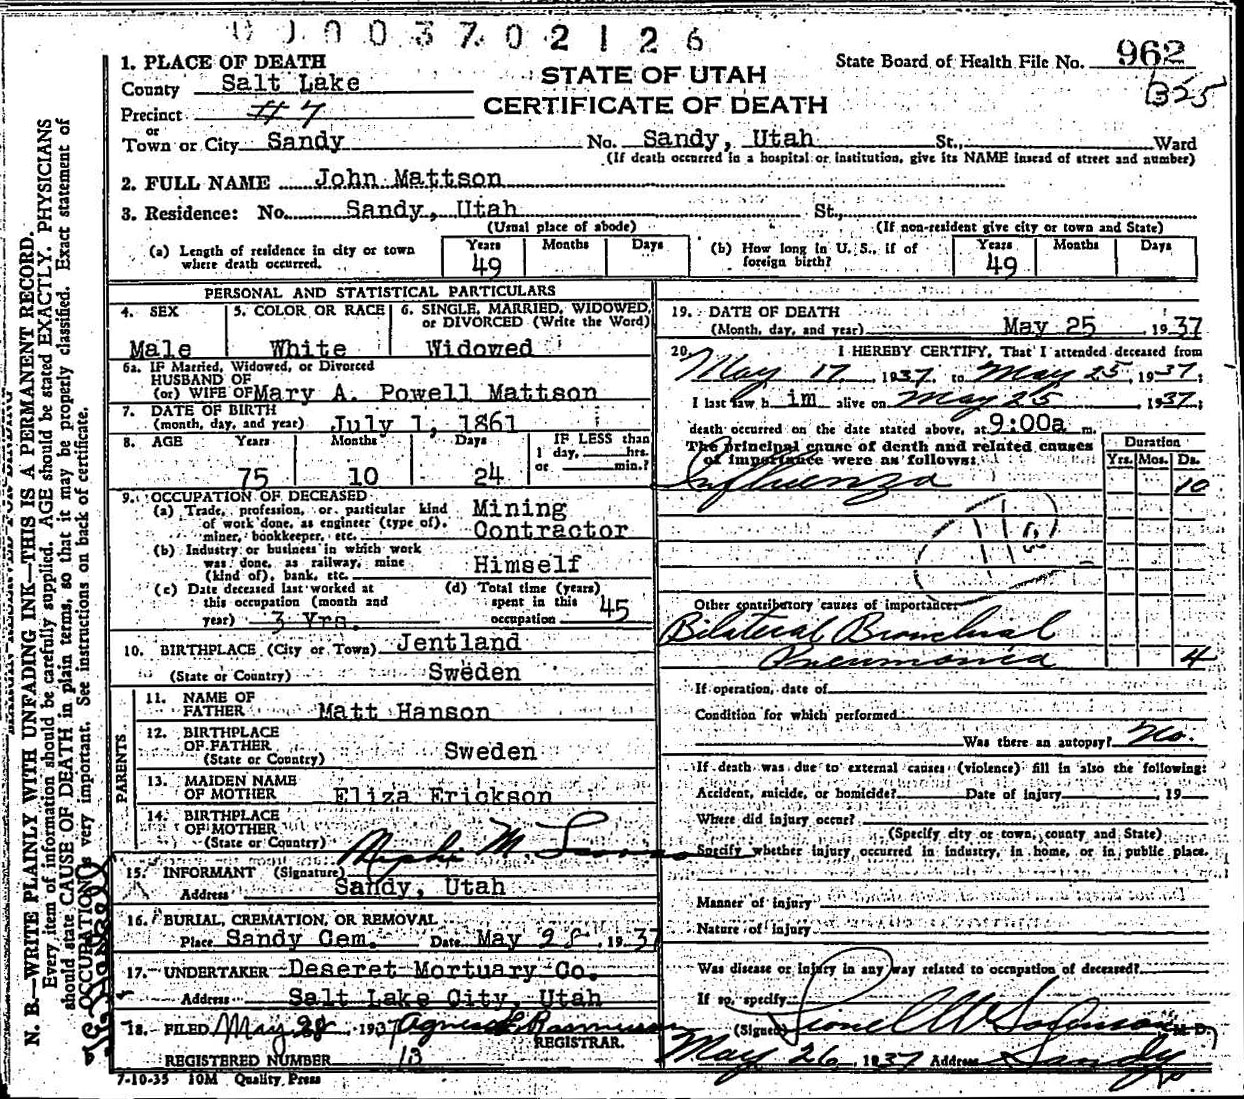 0003702126
State Board of Health File No. 962
B25
STATE OF UTAH
CERTIFICATE OF DEATH
1. PLACE OF DEATH
County Salt Lake
Precinct #7
or
Town or City Sandy No. Sandy, Utah St., Ward
(If death occurred in a hospital or institution, give its NAME insead of street and number)
2. FULL NAME John Mattson
3. Residence: No. Sandy, Utah St.,
(Usual place of abode) (If non-resident give city or town and State)
(a) Length of residence in city or town where death occurred. Years 49 Months Days
(b) How long in U. S., if of foreign birth? Years 49 Months Days
PERSONAL AND STATISTICAL PARTICULARS
4. SEX Male
5. COLOR OR RACE White
6. SINGLE, MARRIED, WIDOWED, or DIVORCED (Write the Word) Widowed
6a. IF Married, Widowed, or Divorced
HUSBAND OF
(or) WIFE OF Mary A. Powell Mattson
7. DATE OF BIRTH
(month, day, and year) July 1, 1861
8. AGE Years 75 Months 10 Days 24 IF LESS than 1 day, hrs. or min.?
9. OCCUPATION OF DECEASED
(a) Trade, profession, or particular kind of work done, as engineer (type of), miner, bookkeeper, etc. Mining Contractor
(b) Industry or business in which work was done, as railway, mine (kind of), bank, etc. Himself
(c) Date deceased last worked at this occupation (month and year) 3 Yrs.
(d) Total time (years) spent in this occupation 45
10. BIRTHPLACE (City or Town) Jentland
(State or Country) Sweden
PARENTS
11. NAME OF FATHER Matt Hanson
12. BIRTHPLACE OF FATHER (State or Country) Sweden
13. MAIDEN NAME OF MOTHER Eliza Erickson
14. BIRTHPLACE OF MOTHER (State or Country)
15. INFORMANT (Signature) Nephi M.
Address Sandy, Utah
16. BURIAL, CREMATION, OR REMOVAL
Place Sandy Cem. Date May 28, 1937
17. UNDERTAKER Deseret Mortuary Co.
Address Salt Lake City, Utah
18. FILED May 28, 1937 Agnes E. Rasmussen
REGISTRAR.
REGISTERED NUMBER 13
7-10-35 10M Quality Press
19. DATE OF DEATH
(Month, day, and year) May 25, 1937
20. I HEREBY CERTIFY, That I attended deceased from
May 17, 1937, to May 25, 1937;
I last saw h im alive on May 25, 1937;
death occurred on the date stated above, at 9:00a m.
The principal cause of death and related causes of importance were as follows:
Duration
Yrs. Mos. Ds.
Influenza 10
Other contributory causes of importance:
Bilateral Bronchial
Pneumonia 4
If operation, date of
Condition for which performed
Was there an autopsy? No.
If death was due to external causes (violence) fill in also the following:
Accident, suicide, or homicide? Date of injury 19
Where did injury occur?
(Specify city or town, county and State)
Specify whether injury occurred in industry, in home, or in public place.
Manner of injury
Nature of injury
Was disease or injury in any way related to occupation of deceased?
If so, specify
(Signed) M. D.
May 26, 1937 Address Sandy
N. B.—WRITE PLAINLY WITH UNFADING INK—THIS IS A PERMANENT RECORD.
Every item of information should be carefully supplied. AGE should be stated EXACTLY. PHYSICIANS
should state CAUSE OF DEATH in plain terms, so that it may be properly classified. Exact statement of
OCCUPATION is very important. See instructions on back of certificate.